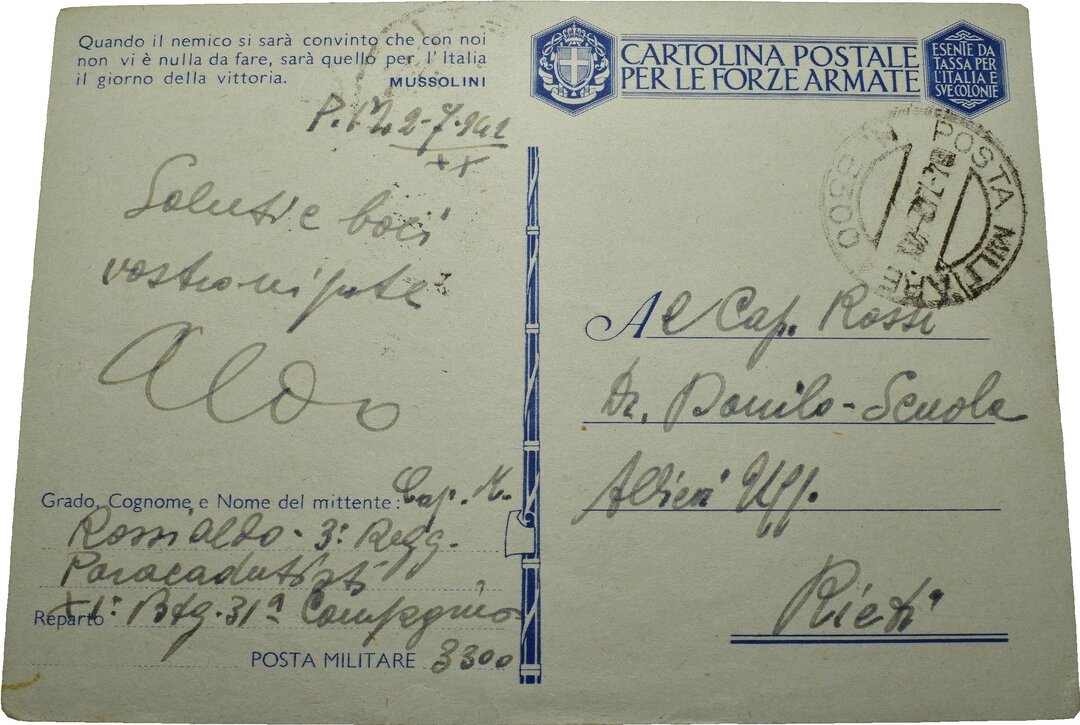 Quando il nemico si sarà convinto che con noi
non vi è nulla da fare, sarà quello per l'Italia
il giorno della vittoria. MUSSOLINI
2-7-942
XX
Saluti e baci
vostro nipote
Aldo
Grado, Cognome e Nome del mittente: Cap. M.
Rossi Aldo - 3° Regg.
Paracadutisti
Reparto XI° Btg. 31ª Compagnia
POSTA MILITARE 3300
CARTOLINA POSTALE
PER LE FORZE ARMATE
ESENTE DA
TASSA PER
L'ITALIA E
SVE COLONIE
POSTA MILITARE
3300
Al Cap. Rossi
Dr. Danilo - Scuola
Allievi Uff.
Rieti